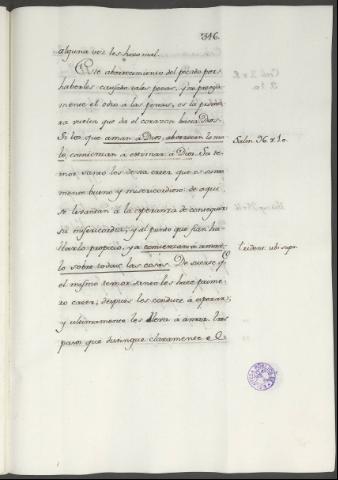 346.
alguna vez les hizo mal.
Este aborrecimiento del pecado por
haberles causado tales penas, y no precisa
mente el odio a las penas, es la primera
vuelta que da el corazon hacia Dios.
Si los que aman a Dios, aborrecen lo ma
lo, comienzan a estimar a Dios. Su te
mor santo los dexa creer que es suma
mente bueno y misericordioso: de aqui
se levantan à la esperanza de conseguir
su misericordia; y al punto que fian ha
llarlo propicio, ya comienzan a amar
lo sobre todas las cosas. De suerte q.
el mismo temor santo les hace prime
ro creer; despues los conduce à esperar;
y ultimamente les lleva à amar: tres
pasos que distingue claramente el
Salm. 96 v. 10.
Trident. ubi supr.